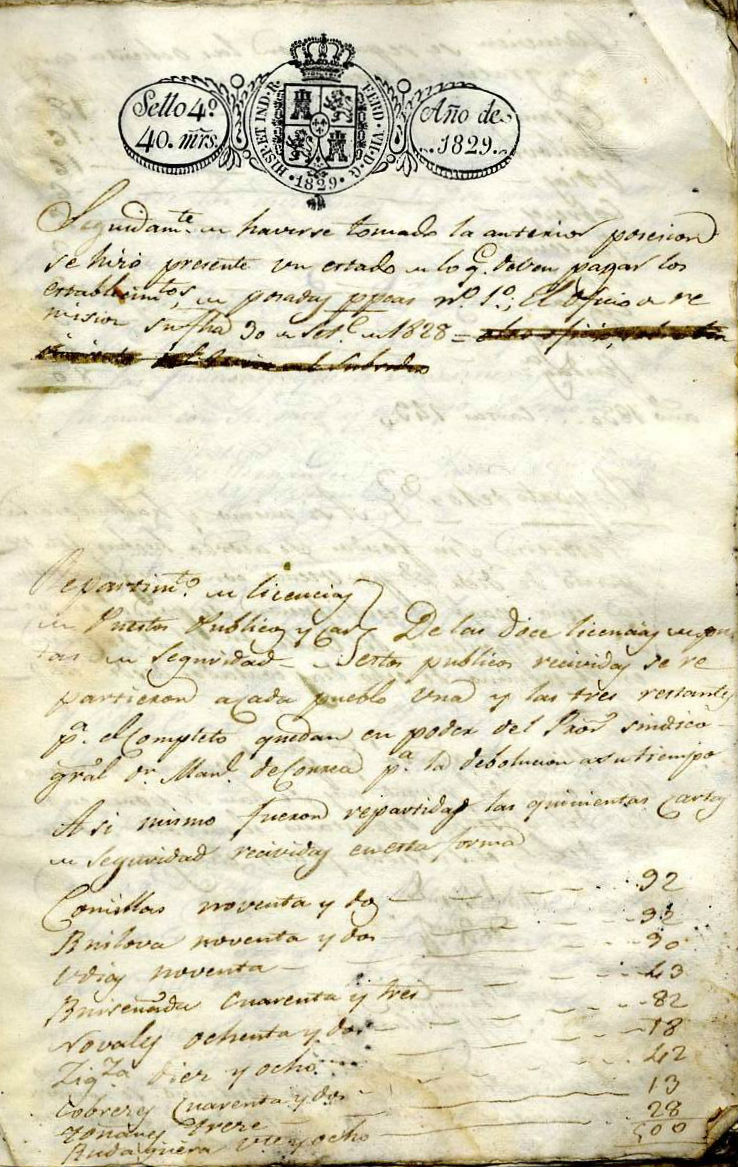 Sello 4º.
40. mrs.
HISP. ET IND. R. FERD. VII. D. G. 1829.
Año de
1829.
Seguidamte. de haverse tomado la anterior posesion
se hizo presente un estado de lo q. deben pagar los
establecimtos, de posadas ppcas nº. 1º.; El oficio de re
mision su fha 30 de Set.e de 1828 =
Repartimto. de licencias
de Puestos Publicos y Cartas De las doce licencias de pu
tas de Seguridad estos publicos recividas se re
partieron a Cada pueblo Una y las tres restantes
pa. el Completo quedan en poder del Pror sindico
gral dn. Manl. de Correa pa. la debolucion a su tiempo
Asi mismo fueron repartidas las quinientas Cartas
de seguridad recividas en esta forma
Comillas noventa y dos 92
Ruilova noventa y dos 92
Udias noventa 90
Ruiseñada Cuarenta y tres 43
Novales ochenta y dos 82
Zigza diez y ocho 18
Cobreces Cuarenta y dos 42
Toñanes trece 13
Rudaguera vte y ocho 28
500